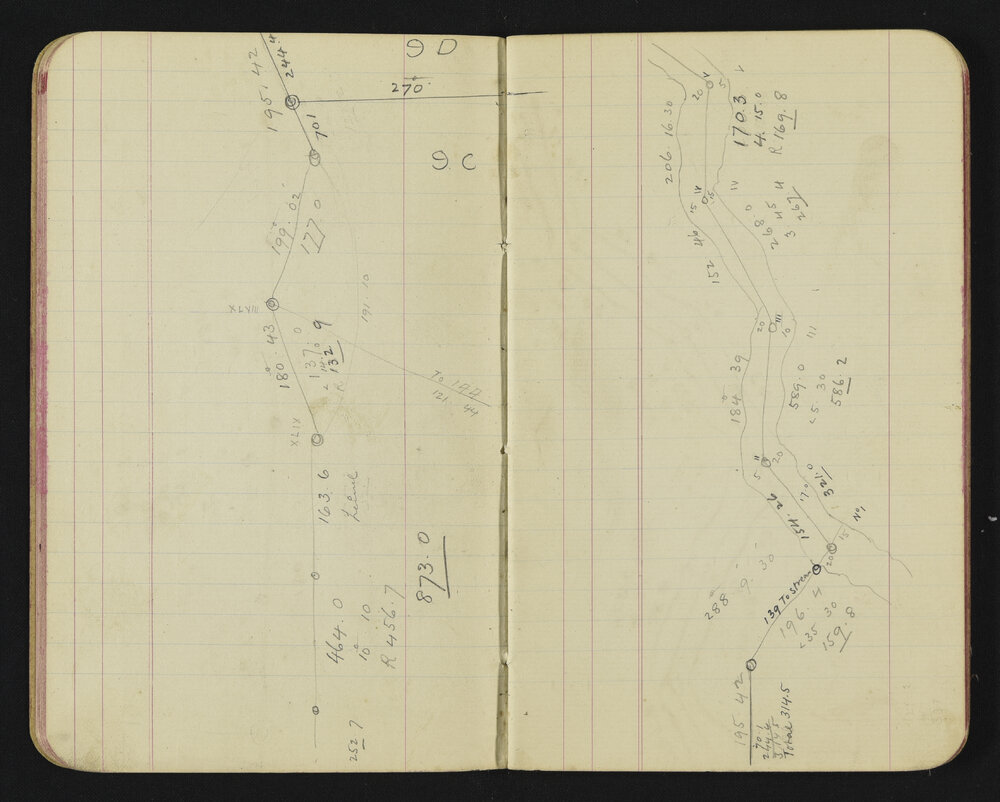 9 D
270
244.4
195. 42
70'
9 C
199. 02
177 0
191 10
XLVIII
180. 43
137. 0
132. 9
R
To 19D
121 44
XLIX
163. 6
Level
873. 0
464. 0
10 10
R 456. 7
252. 7
V
20
5
170. 3
4. 15. 0
R 169. 8
206. 16. 30
IV
15
IV
268. 0
3 267
152 46
20
III
10
III
184 39
589. 0
<5. 30
586. 2
5
II
20
321. 0
154. 26
No 1
15
20
288 9. 30
139 To Stream
196. 4
<35 30
159. 8
195 42
70.1
244.4
314.5
Total 314.5